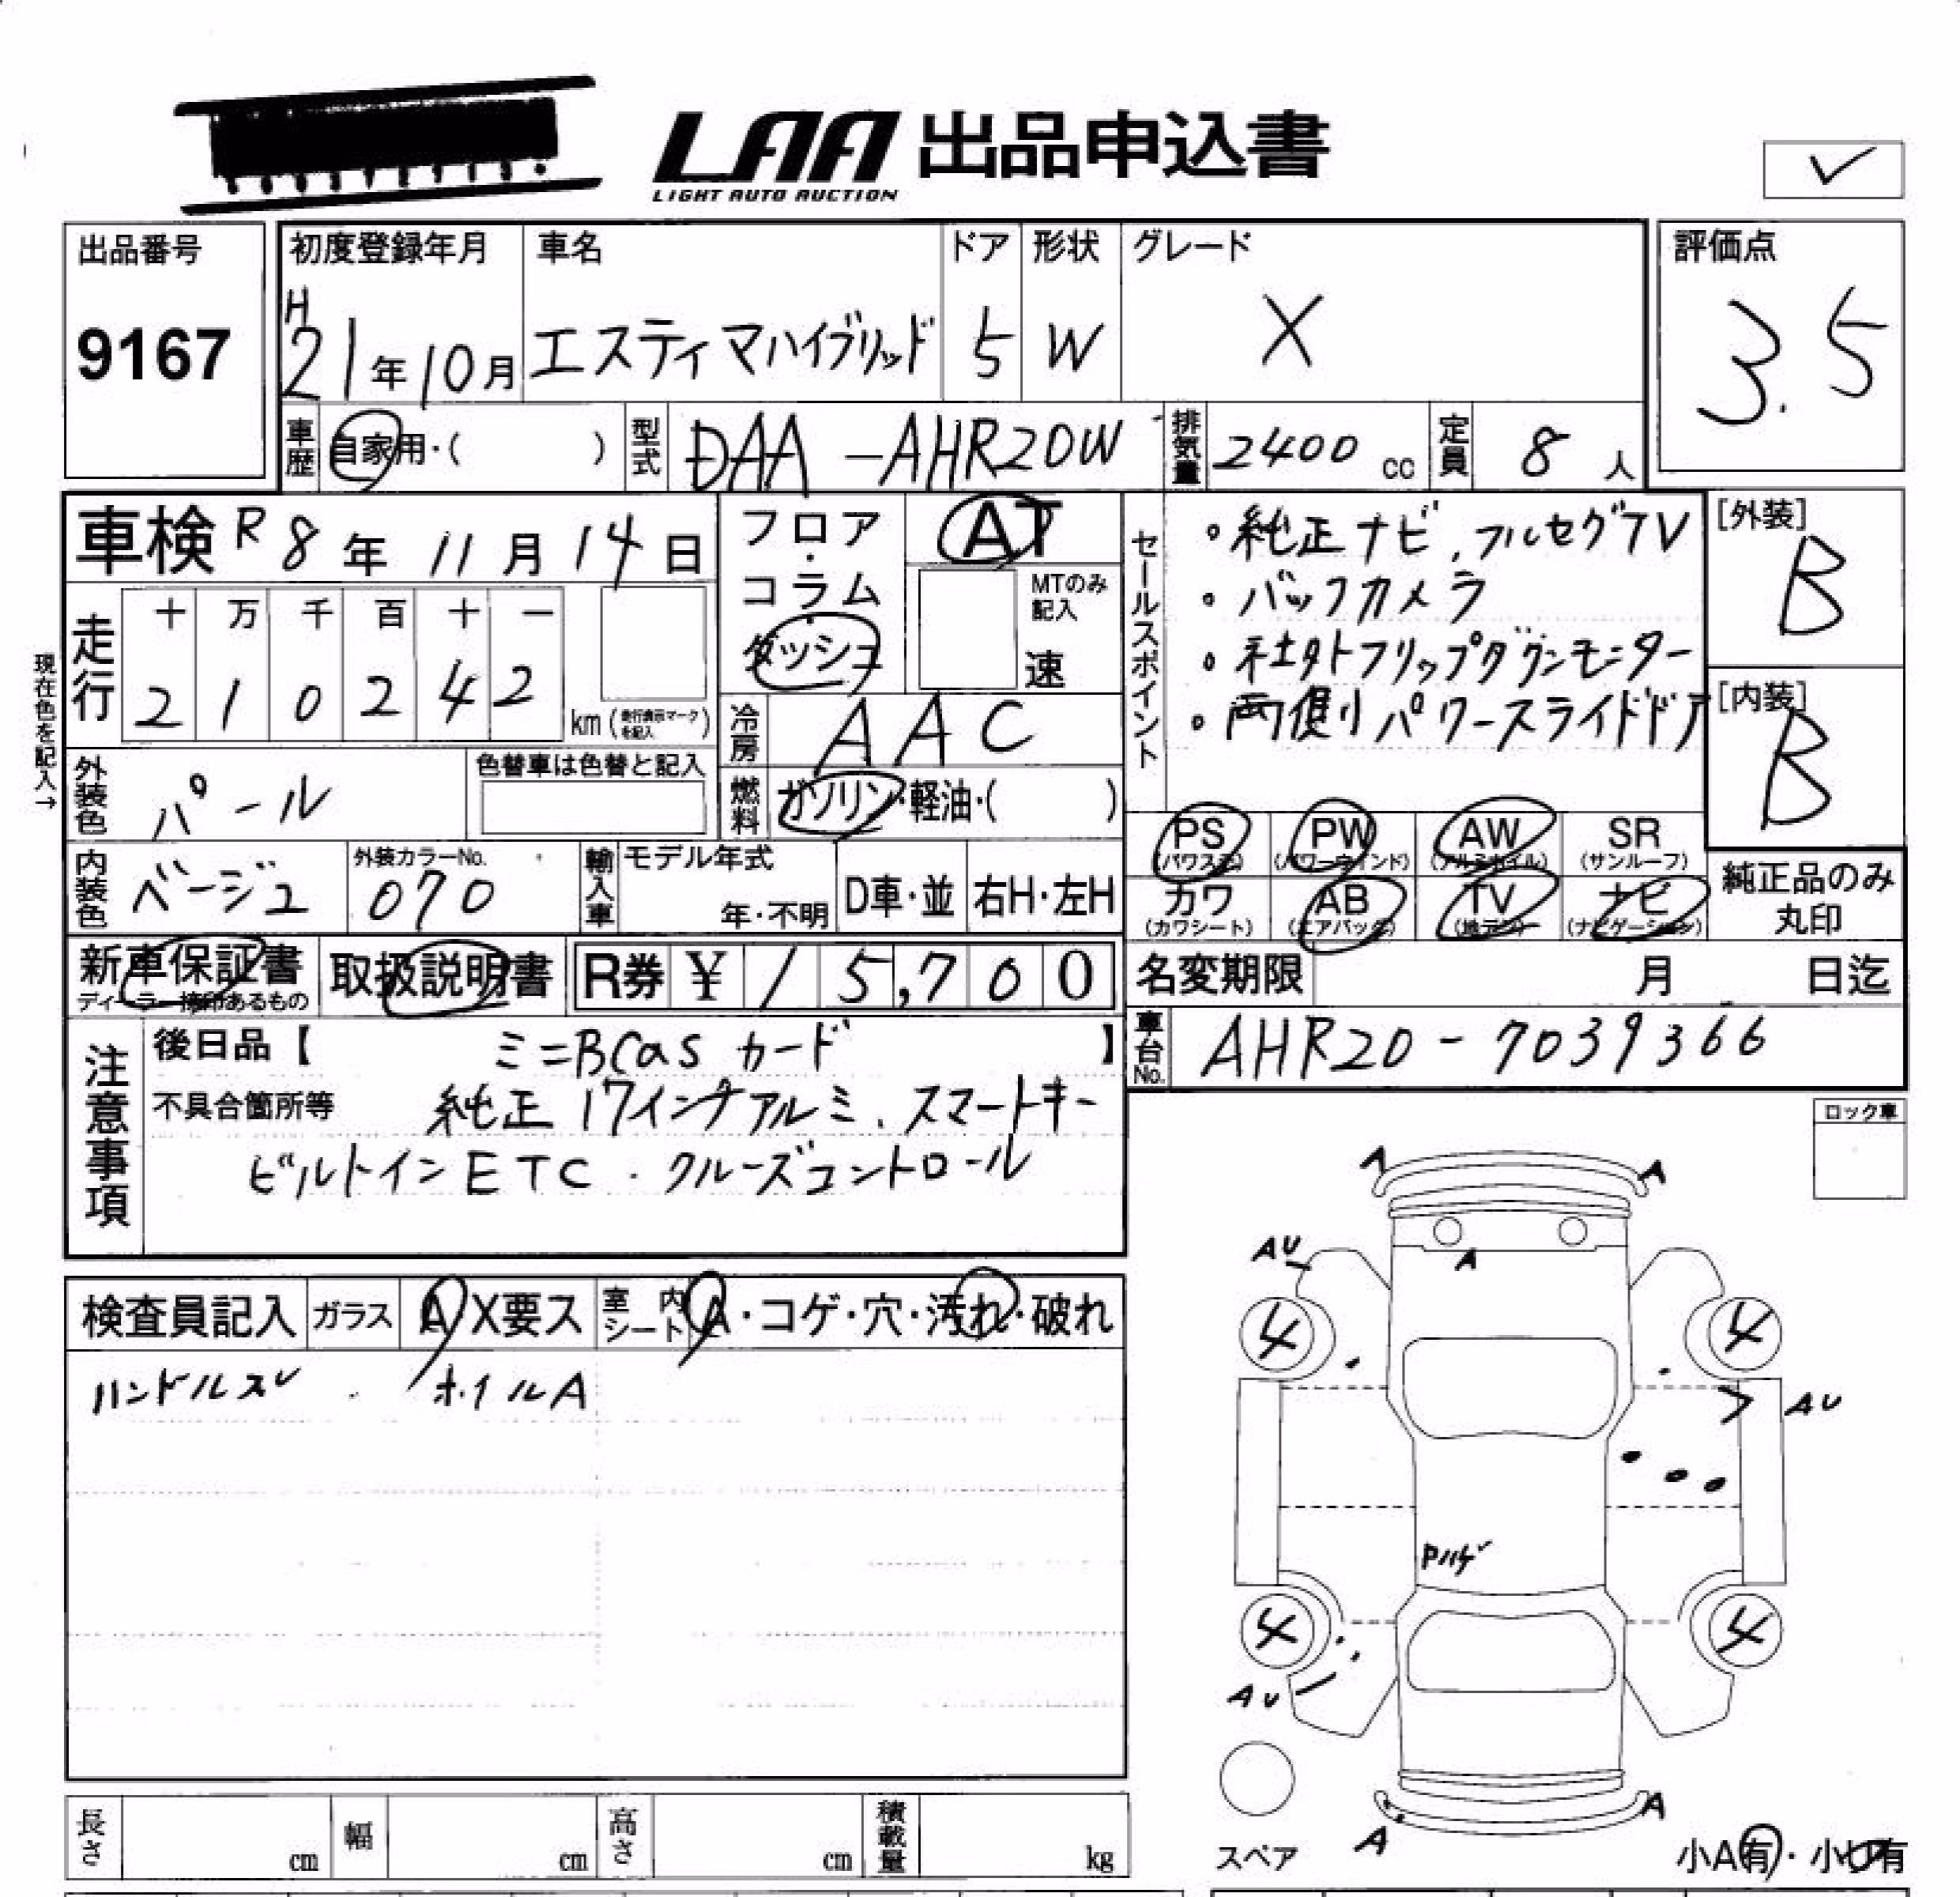 LAA 出品申込書
LIGHT AUTO AUCTION
出品番号
9167
初度登録年月
H21年10月
車名
エスティマハイブリッド
ドア
5
形状
W
グレード
X
評価点
3.5
車歴 自家用・( )
型式 DAA-AHR20W
排気量 2400 cc
定員 8 人
車検 R8年 11月 14日
フロア・コラム・ダッシュ
AT
MTのみ記入
速
セールスポイント
・純正ナビ、フルセグTV
・バックカメラ
・社外フリップダウンモニター
・両側パワースライドドア
[外装]
B
[内装]
B
現在色を記入→
走行
十 万 千 百 十 一
2 1 0 2 4 2
km (走行表示マークを記入)
冷房 AAC
外装色 パール
色替車は色替と記入
燃料 ガソリン・軽油・( )
内装色 ベージュ
外装カラーNo.
070
輸入車
モデル年式
年・不明
D車・並
右H・左H
PS (パワステ)
PW (パワーウインド)
AW (アルミホイル)
SR (サンルーフ)
カワ (カワシート)
AB (エアバック)
TV (地デジ)
ナビ (ナビゲーション)
純正品のみ丸印
新車保証書
ディーラー捺印あるもの
取扱説明書
R券 ¥ 15,700
名変期限 月 日迄
車台No. AHR20-7039366
注意事項
後日品【 ミニBCasカード 】
不具合箇所等 純正17インチアルミ、スマートキー
ビルトインETC・クルーズコントロール
ロック車
検査員記入
ガラス A/X要ス
室内シート A・コゲ・穴・汚れ・破れ
ハンドルスレ . ホイルA
A A
AU A
4 4
AU
Pハゲ
4 4
AU
A A
スペア
小A有・小U有
長さ cm
幅 cm
高さ cm
積載量 kg